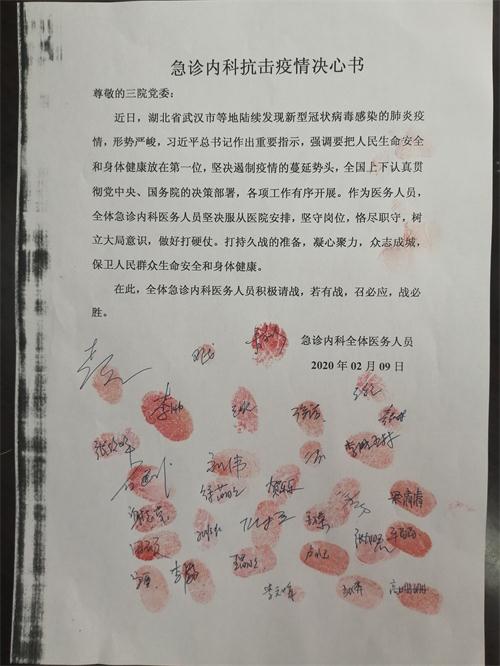 急诊内科抗击疫情决心书
尊敬的三院党委：
近日，湖北省武汉市等地陆续发现新型冠状病毒感染的肺炎疫
情，形势严峻，习近平总书记作出重要指示，强调要把人民生命安全
和身体健康放在第一位，坚决遏制疫情的蔓延势头，全国上下认真贯
彻党中央、国务院的决策部署，各项工作有序开展。作为医务人员，
全体急诊内科医务人员坚决服从医院安排，坚守岗位，恪尽职守，树
立大局意识，做好打硬仗。打持久战的准备，凝心聚力，众志成城，
保卫人民群众生命安全和身体健康。
在此，全体急诊内科医务人员积极请战，若有战，召必应，战必
胜。
急诊内科全体医务人员
2020 年 02 月 09 日